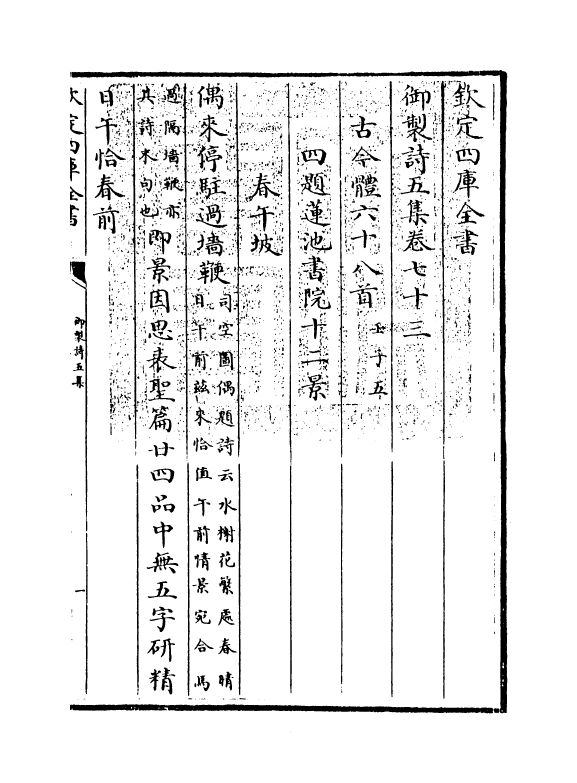 欽定四庫全書
御製詩五集卷七十三
古今體六十八首 壬子五
四題蓮池書院十二景
春午坡
偶來停駐過墻鞭 司空圖偶題詩云水榭花繁處春晴
日午前兹來恰值午前情景宛合馬
過隔墻鞭亦
其詩末句也 即景因思表聖篇廿四品中無五字研精
日午恰春前
欽定四庫全書
御製詩五集
一